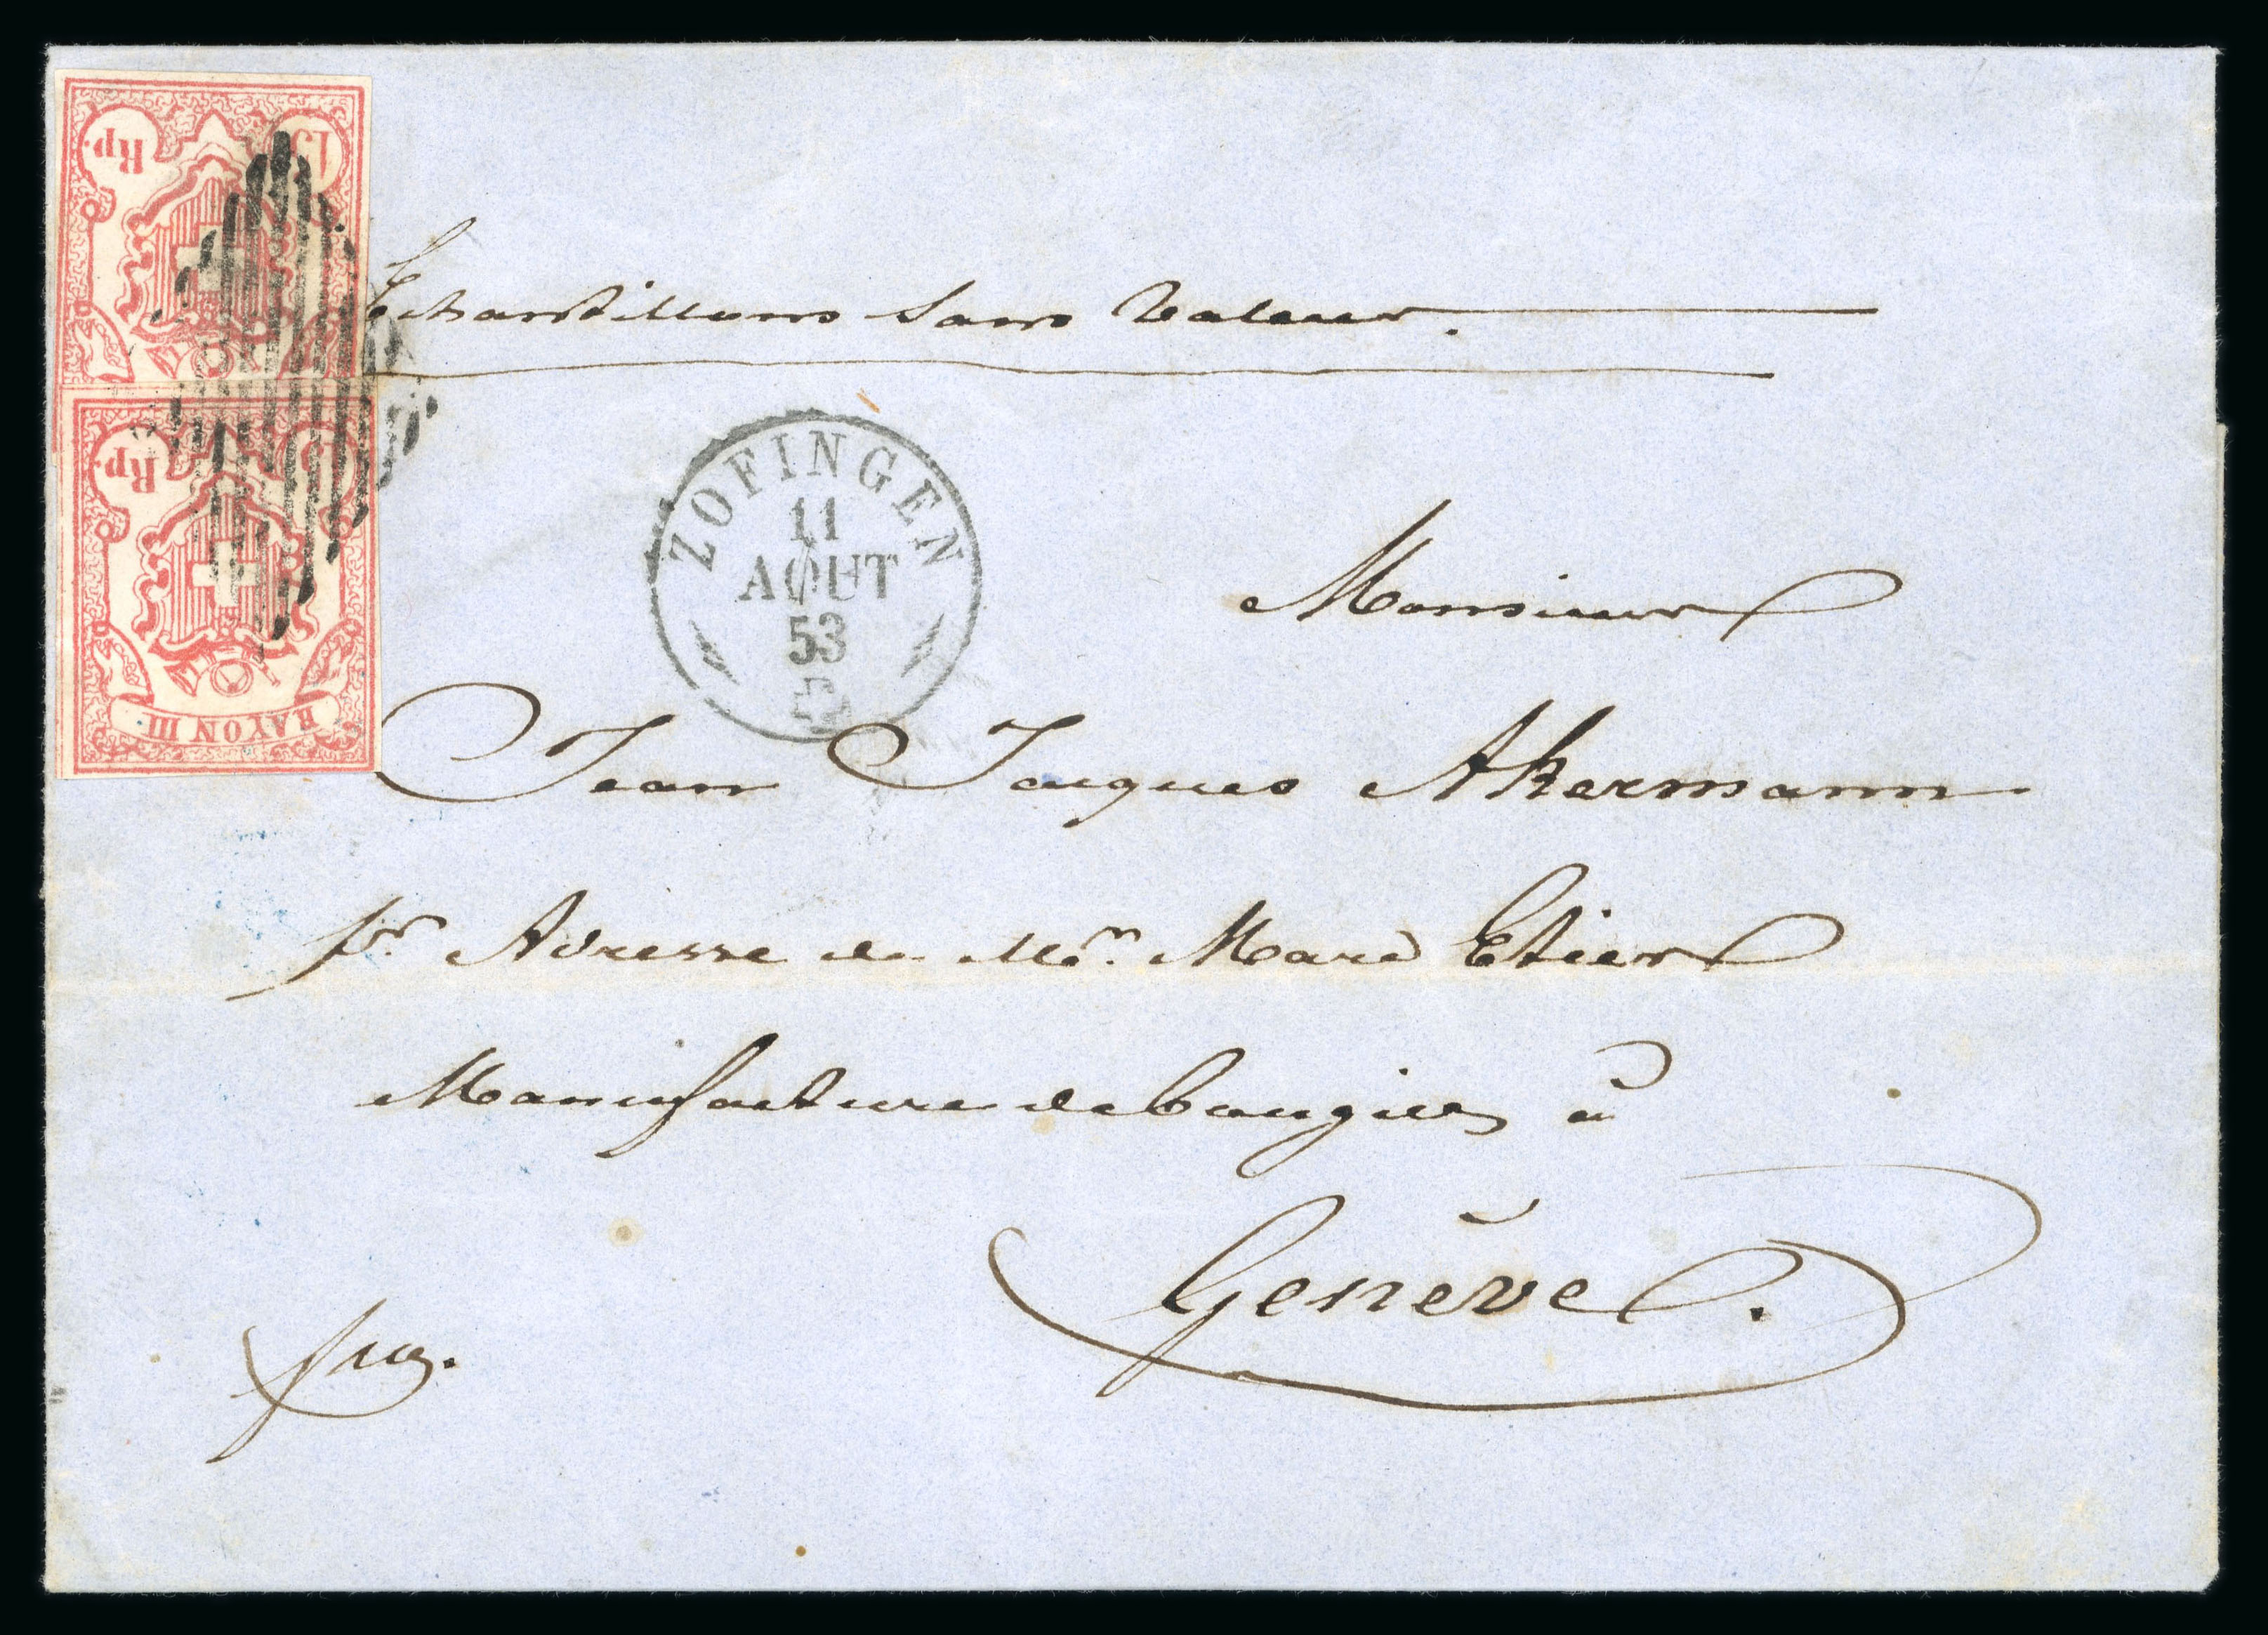 15 Rp.
Rp.
RAYON III.
Echantillons Sans Valeur.
ZOFINGEN
11
AOUT
53
Monsieur
Jean Jaques Akermann
pr. Adresse de Mr. Marc Etier
Manufacture de bougies à
Genève.